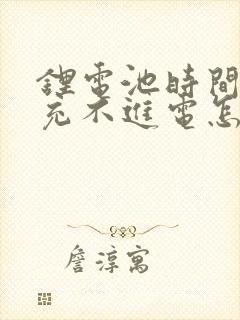 鋰電池時間
充不進電怎
詹淳寓